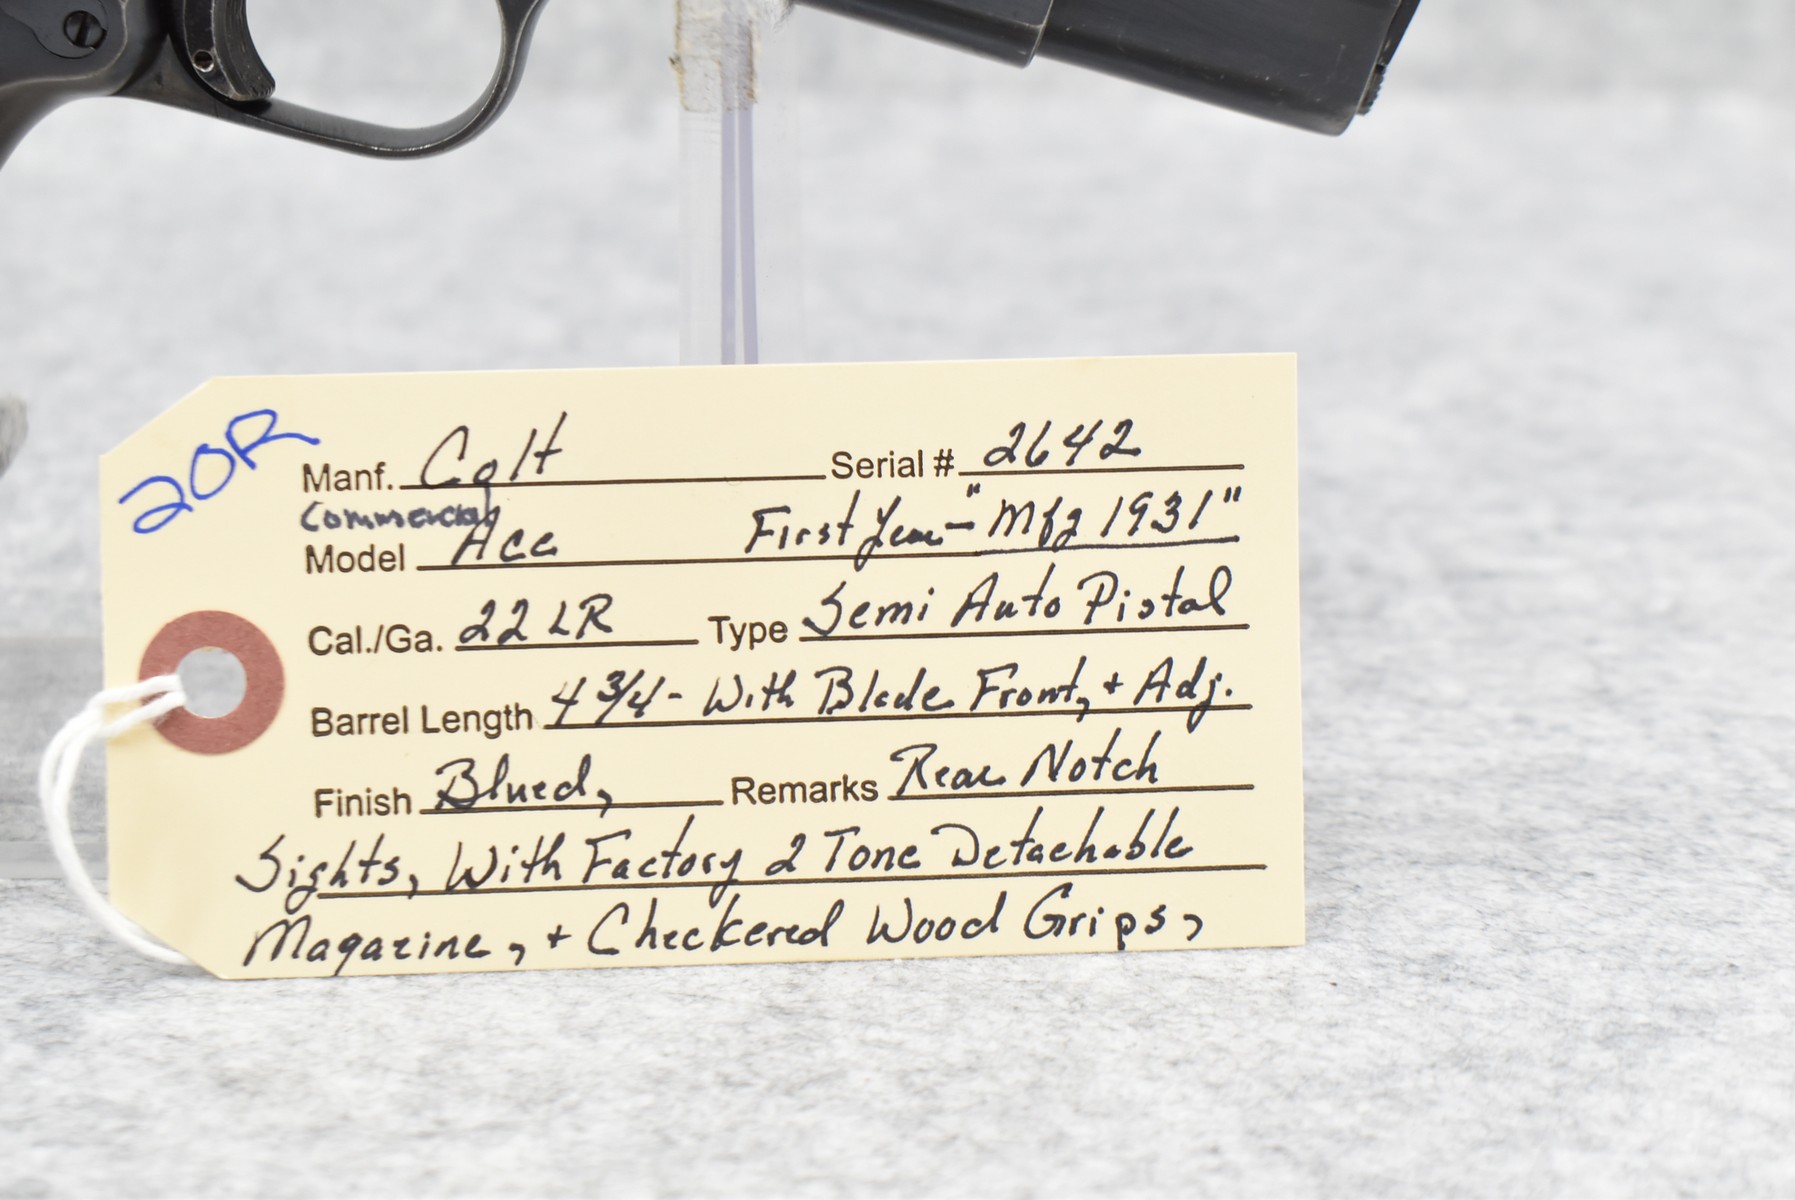 20R
Manf. Colt Serial # 2642
Commercial
Model Ace First Year - "Mfg 1931"
Cal./Ga. 22 LR Type Semi Auto Pistol
Barrel Length 4 3/4 - With Blade Front, + Adj.
Finish Blued, Remarks Rear Notch
Sights, With Factory 2 Tone Detachable
Magazine, + Checkered Wood Grips,